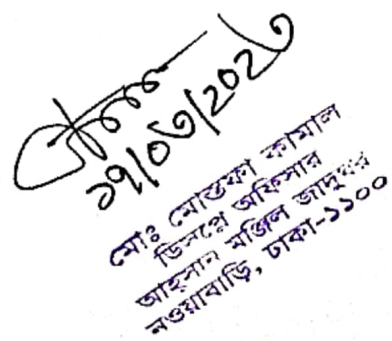 ১৭/০৬/২০২৬
মোঃ মোস্তফা কামাল
ডিসপ্লে অফিসার
আহসান মঞ্জিল জাদুঘর
নওয়াবাড়ি, ঢাকা-১১০০